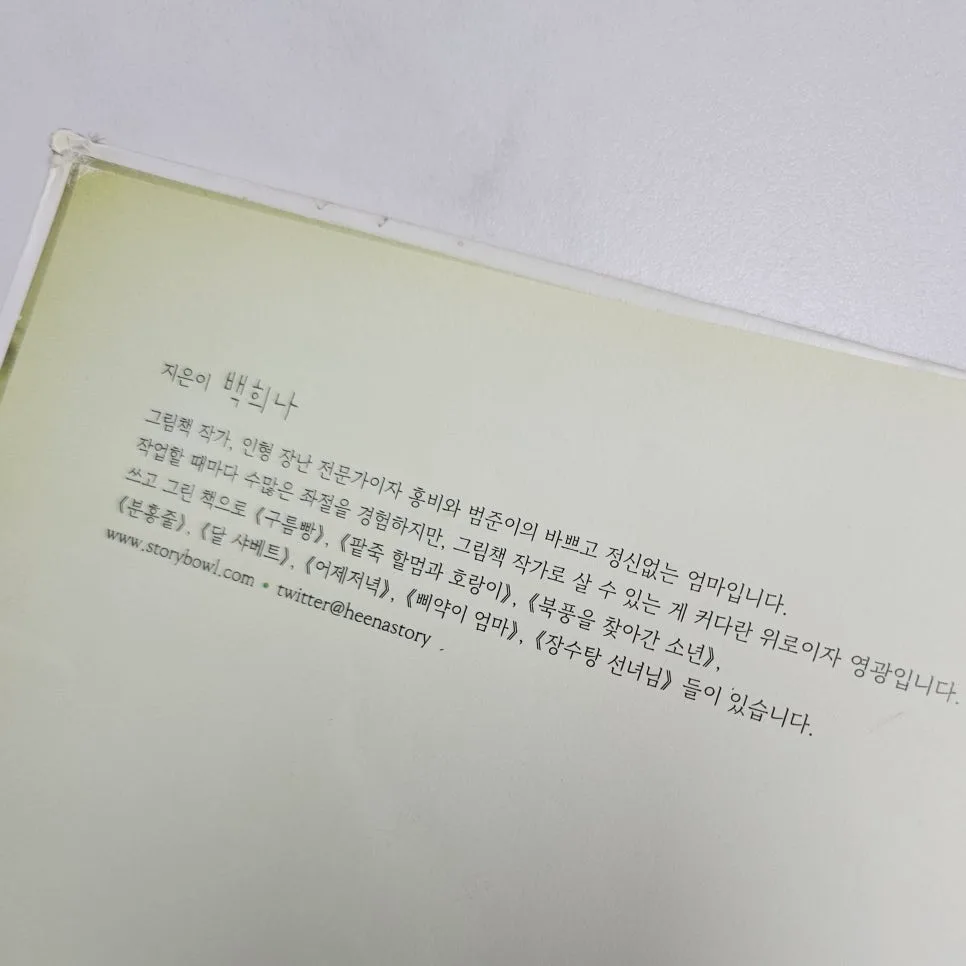 지은이 백희나
그림책 작가, 인형 장난 전문가이자 홍비와 범준이의 바쁘고 정신없는 엄마입니다.
작업할 때마다 수많은 좌절을 경험하지만, 그림책 작가로 살 수 있는 게 커다란 위로이자 영광입니다.
쓰고 그린 책으로 《구름빵》, 《팥죽 할멈과 호랑이》, 《북풍을 찾아간 소년》,
《분홍줄》, 《달 샤베트》, 《어제저녁》, 《삐약이 엄마》, 《장수탕 선녀님》 들이 있습니다.
www.storybowl.com • twitter@heenastory